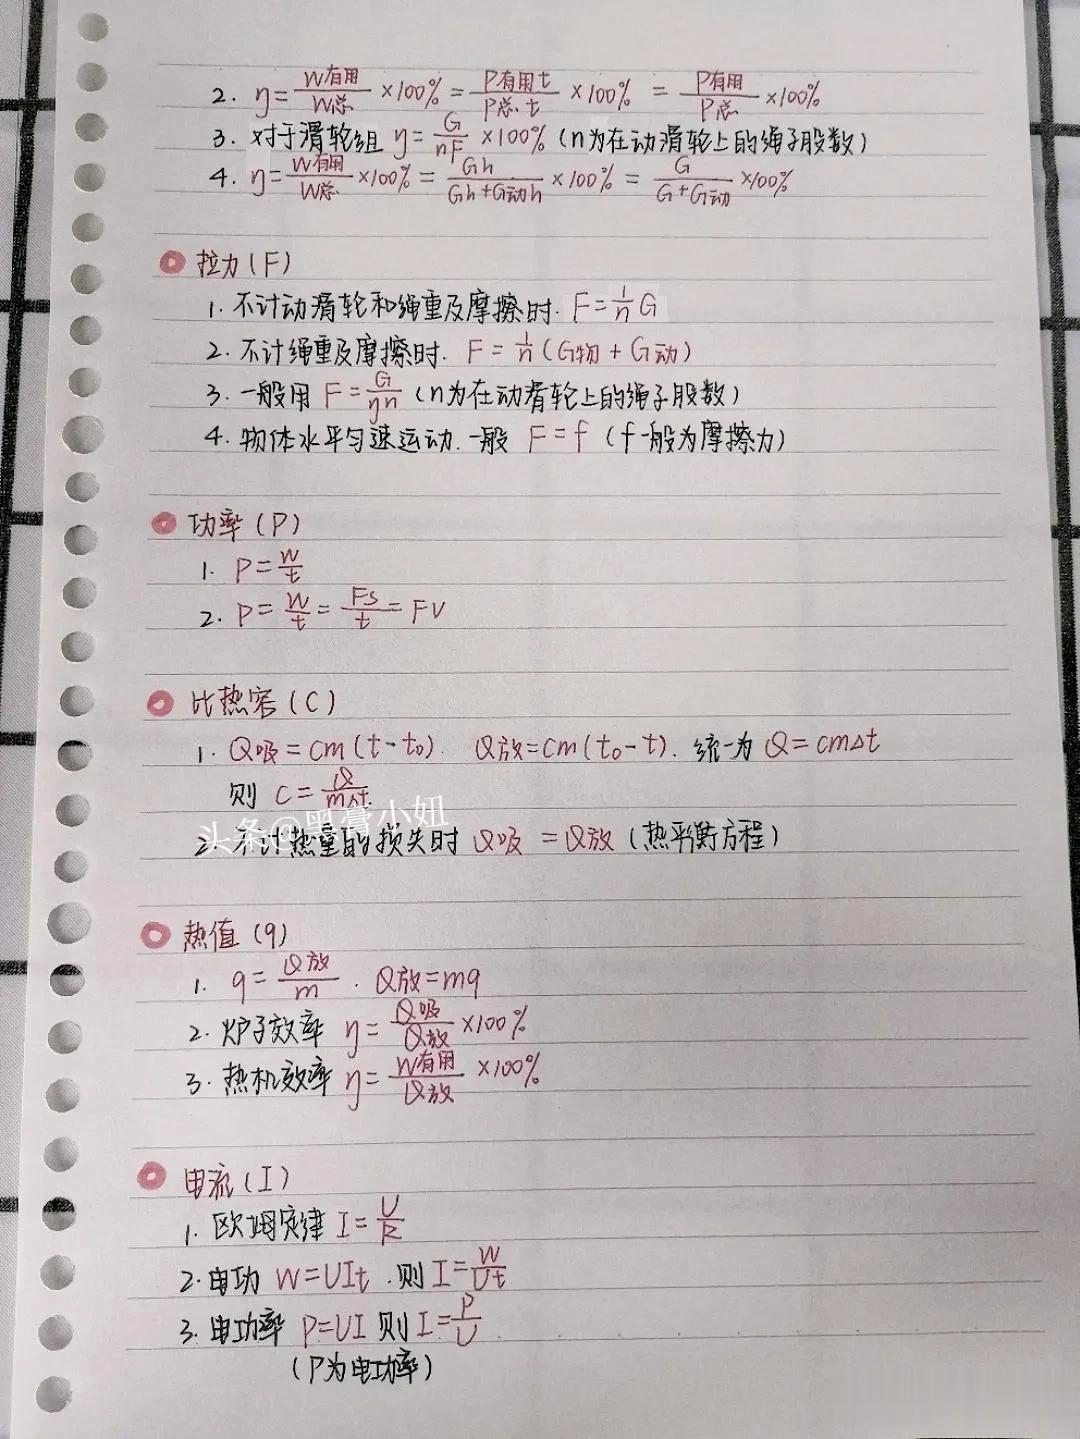 2. η=W有用/W总 ×100% = P有用t/P总t ×100% = P有用/P总 ×100%
3. 对于滑轮组 η=G/nF ×100% (n为在动滑轮上的绳子股数)
4. η=W有用/W总 ×100% = Gh/Gh+G动h ×100% = G/G+G动 ×100%
拉力(F)
1. 不计动滑轮和绳重及摩擦时. F=1/n G
2. 不计绳重及摩擦时. F=1/n(G物+G动)
3. 一般用 F=G/ηn (n为在动滑轮上的绳子股数)
4. 物体水平匀速运动.一般 F=f (f一般为摩擦力)
功率(P)
1. P=W/t
2. P=W/t=Fs/t=FV
比热容(C)
1. Q吸=cm(t-t₀). Q放=cm(t₀-t). 统一为 Q=cm△t
则 C=Q/m△t
头条@黑膏小妞
2 不计热量的损失时 Q吸=Q放(热平衡方程)
热值(q)
1. q=Q放/m. Q放=mq
2. 炉子效率 η=Q吸/Q放×100%
3. 热机效率 η=W有用/Q放 ×100%
电流(I)
1. 欧姆定律 I=U/R
2. 电功 W=UIt.则 I=W/Ut
3. 电功率 P=UI 则 I=P/U
(P为电功率)